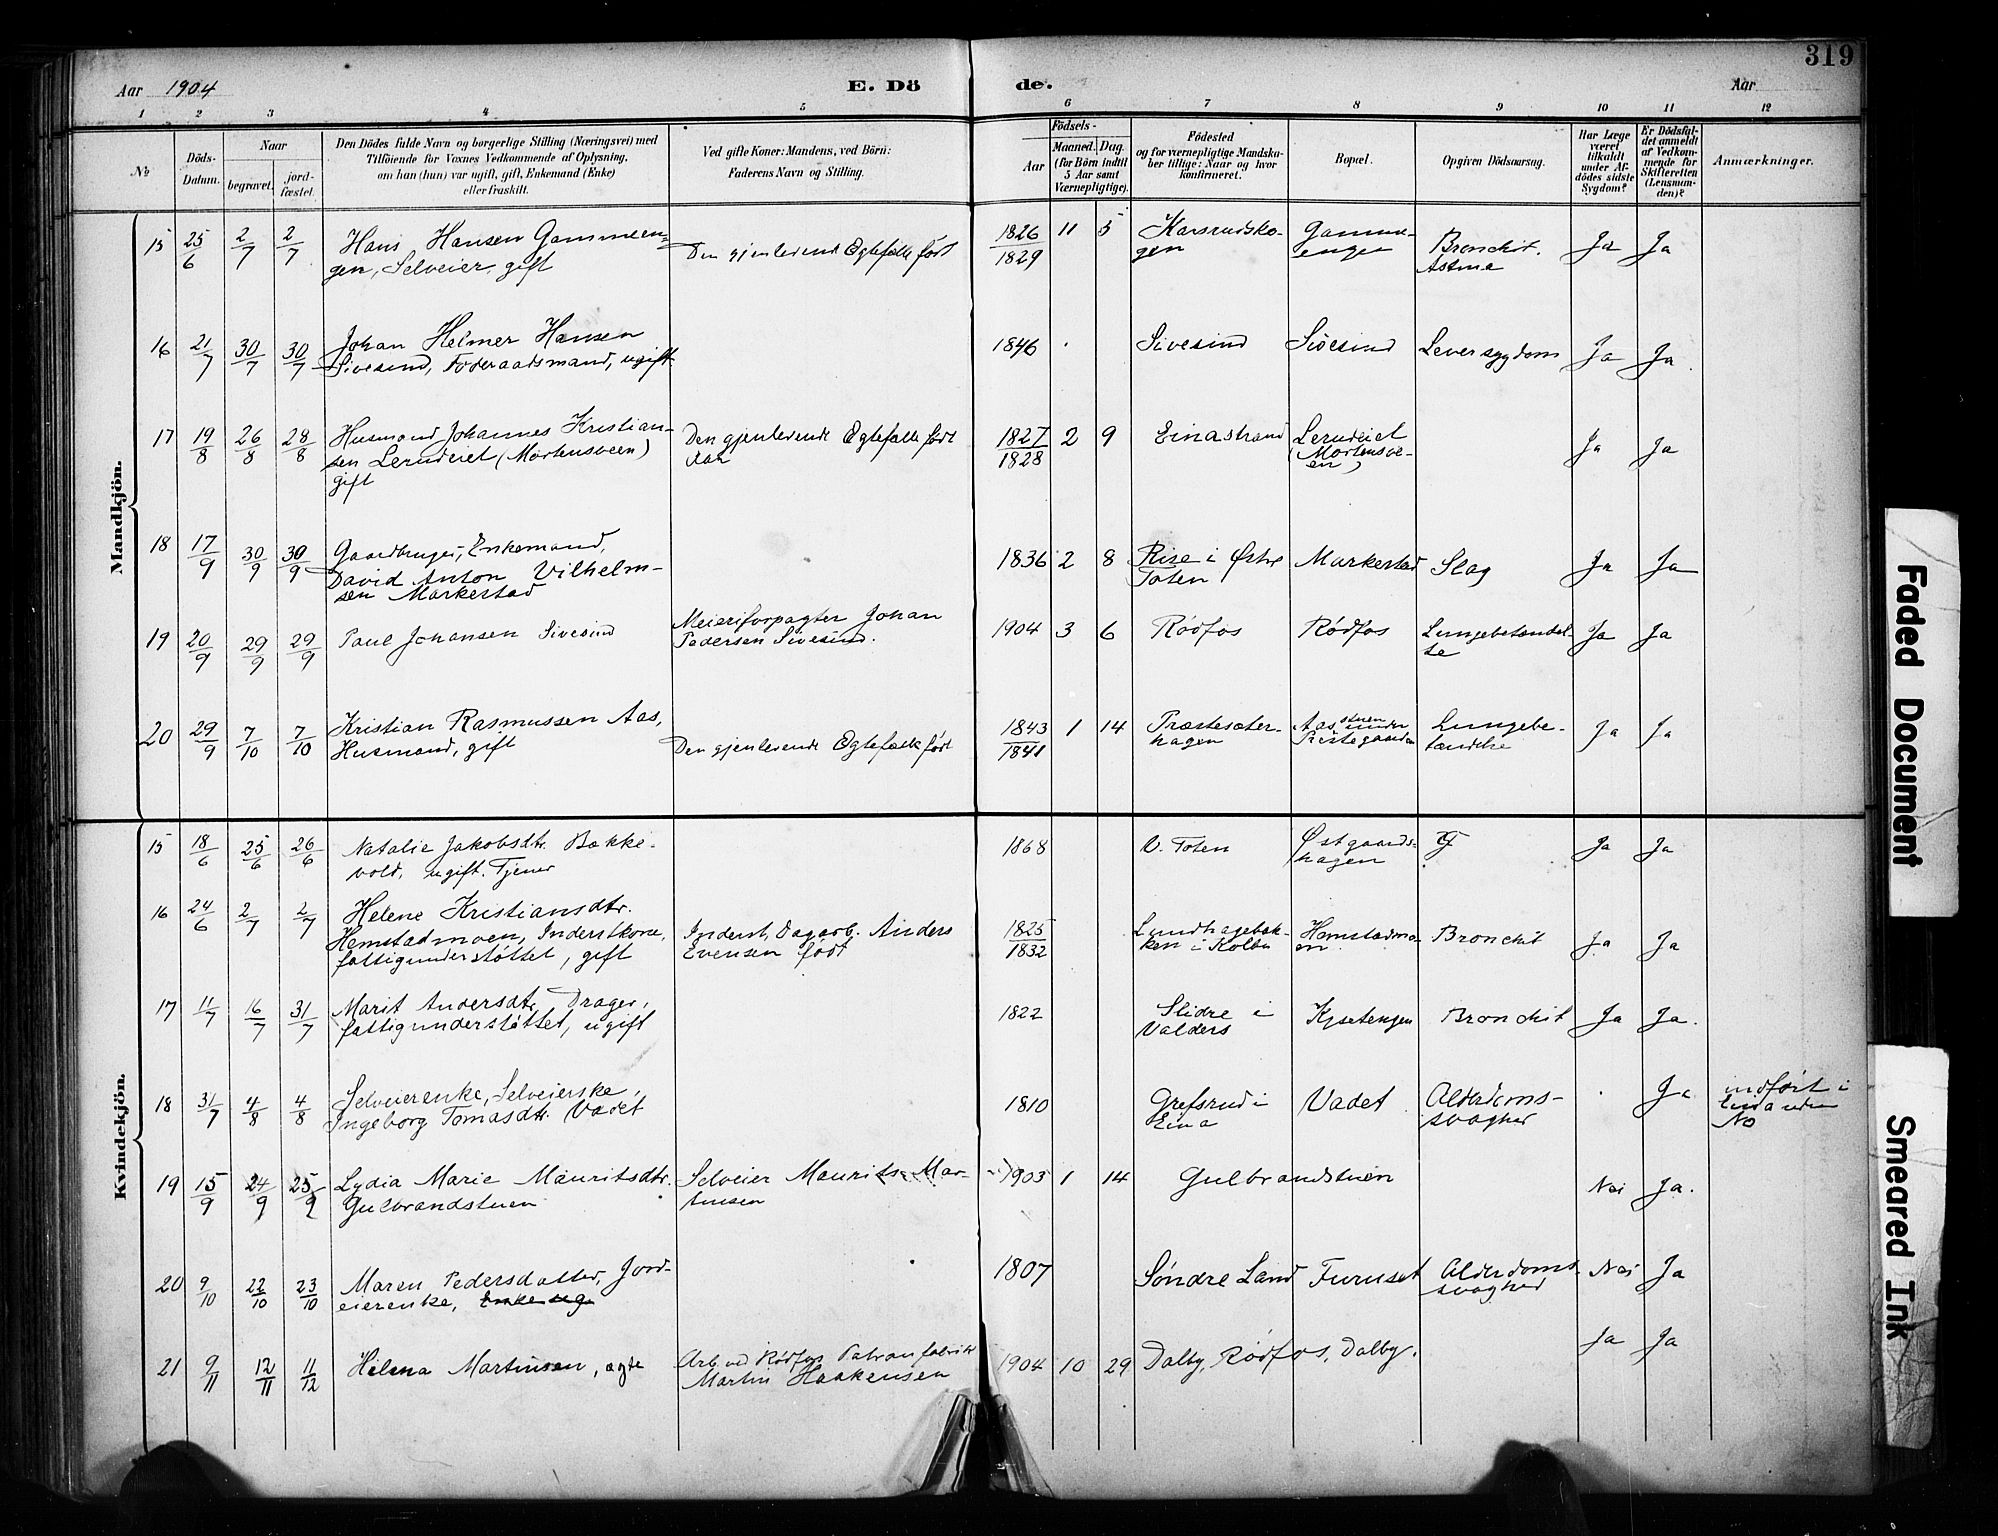 319
Aar 1904
E. Dö
de.
Aar
1 2 3 4 5 6 7 8 9 10 11 12
№
Döds-
Datum.
Naar
begravet.
jord-
fæstet.
Den Dödes fulde Navn og borgerlige Stilling (Næringsvei) med
Tilföiende for Voxnes Vedkommende af Oplysning,
om han (hun) var ugift, gift, Enkemand (Enke)
eller fraskilt.
Ved gifte Koner: Mandens, ved Börn:
Faderens Navn og Stilling.
Födsels-
Aar
Maaned. Dag.
(for Börn indtil
5 Aar samt
Værnepligtige).
Födested
og for værnepligtige Mandska-
ber tillige: Naar og hvor
konfirmeret.
Bopæl.
Opgiven Dödsaarsag.
Har Læge
været
tilkaldt
under Af-
dödes sidste
Sygdom?
Er Dödsfal-
det anmeldt
af Vedkom-
mende for
Skifteretten
(Lensman-
den)?
Anmærkninger.
Mandkjön.
15 25/6 2/7 2/7 Hans Hansen Gammeen-
gen, Selveier, gift
Den gjenlevende Egtefælle født
1826/1829 11 5 Karsrudsko-
gen
Gamme-
engen
Bronchit.
Astma
Ja Ja
16 21/7 30/7 30/7 Johan Helmer Hansen
Sivesind, Föderaadsmand, ugift.
1846 Sivesind Sivesind Leversygdom Ja Ja
17 19/8 26/8 28/8 Husmand Johannes Kristian-
sen Lerudeiet (Mortensveen)
gift
Den gjenlevende Egtefælle født
Aar
1827/1828 2 9 Einastrand Lerudeiet
(Mortensve-
en)
Ja Ja
18 17/9 30/9 30/9 Gaardbruger, Enkemand,
David Anton Vilhelm-
sen Markestad
1836 2 8 Rise i Østre
Toten
Markestad Slag Ja Ja
19 20/9 29/9 29/9 Paul Johansen Sivesind
Meieriforpagter Johan
Pedersen Sivesind.
1904 3 6 Rödfos Rödfos Lungebetændel-
se
Ja Ja
20 29/9 7/10 7/10 Kristian Rasmussen Aas,
Husmand, gift
Den gjenlevende Egtefælle født
1843/1841 1 14 Præstesæter-
hagen
Aasstuen
under
Lungebe-
tændelse
Ja Ja
Kvindekjön.
15 18/6 25/6 26/6 Natalie Jakobsdtr. Bakke-
vold, ugift. Tjener
1868 V. Toten Østgaards-
hagen
Ja Ja
16 24/6 2/7 2/7 Helene Kristiansdtr.
Hemstadmoen, Inderstkone,
fattigunderstöttet, gift
Inderst, Dagarb. Anders
Evensen født
1825/1832 Lundhagebak-
ken i Kolbu
Hemstadmo-
en
Bronchit Ja Ja
17 11/7 16/7 31/7 Marit Andersdtr. Drager,
fattigunderstöttet, ugift
1822 Slidre i
Valders
Kjsetengen Bronchit Ja Ja.
18 31/7 4/8 4/8 Selveierenke, Selveierske,
Ingeborg Tomasdtr. Vadet
1810 Grefsrud i
Eina
Vadet Alderdoms-
svaghed
Ja indført i
Eina under
No
19 15/9 24/9 25/9 Lydia Marie Mauritsdtr.
Gulbrandstuen
Selveier Maurits Mar-
tinsen
1903 1 14 Gulbrandstuen
Nei Ja.
20 9/10 22/10 23/10 Maren Pedersdatter, Jord-
eierenke, Enke ug
1807 Søndre Land Furuset Alderdoms-
svaghed
Nei Ja
21 9/11 12/11 11/12 Helena Martinsen, ægte
Arb. ved Rödfos Patronfabrik
Martin Haakensen
1904 10 29 Dalby, Rödfos, Dalby.
Ja Ja
Faded Document
Smeared Ink